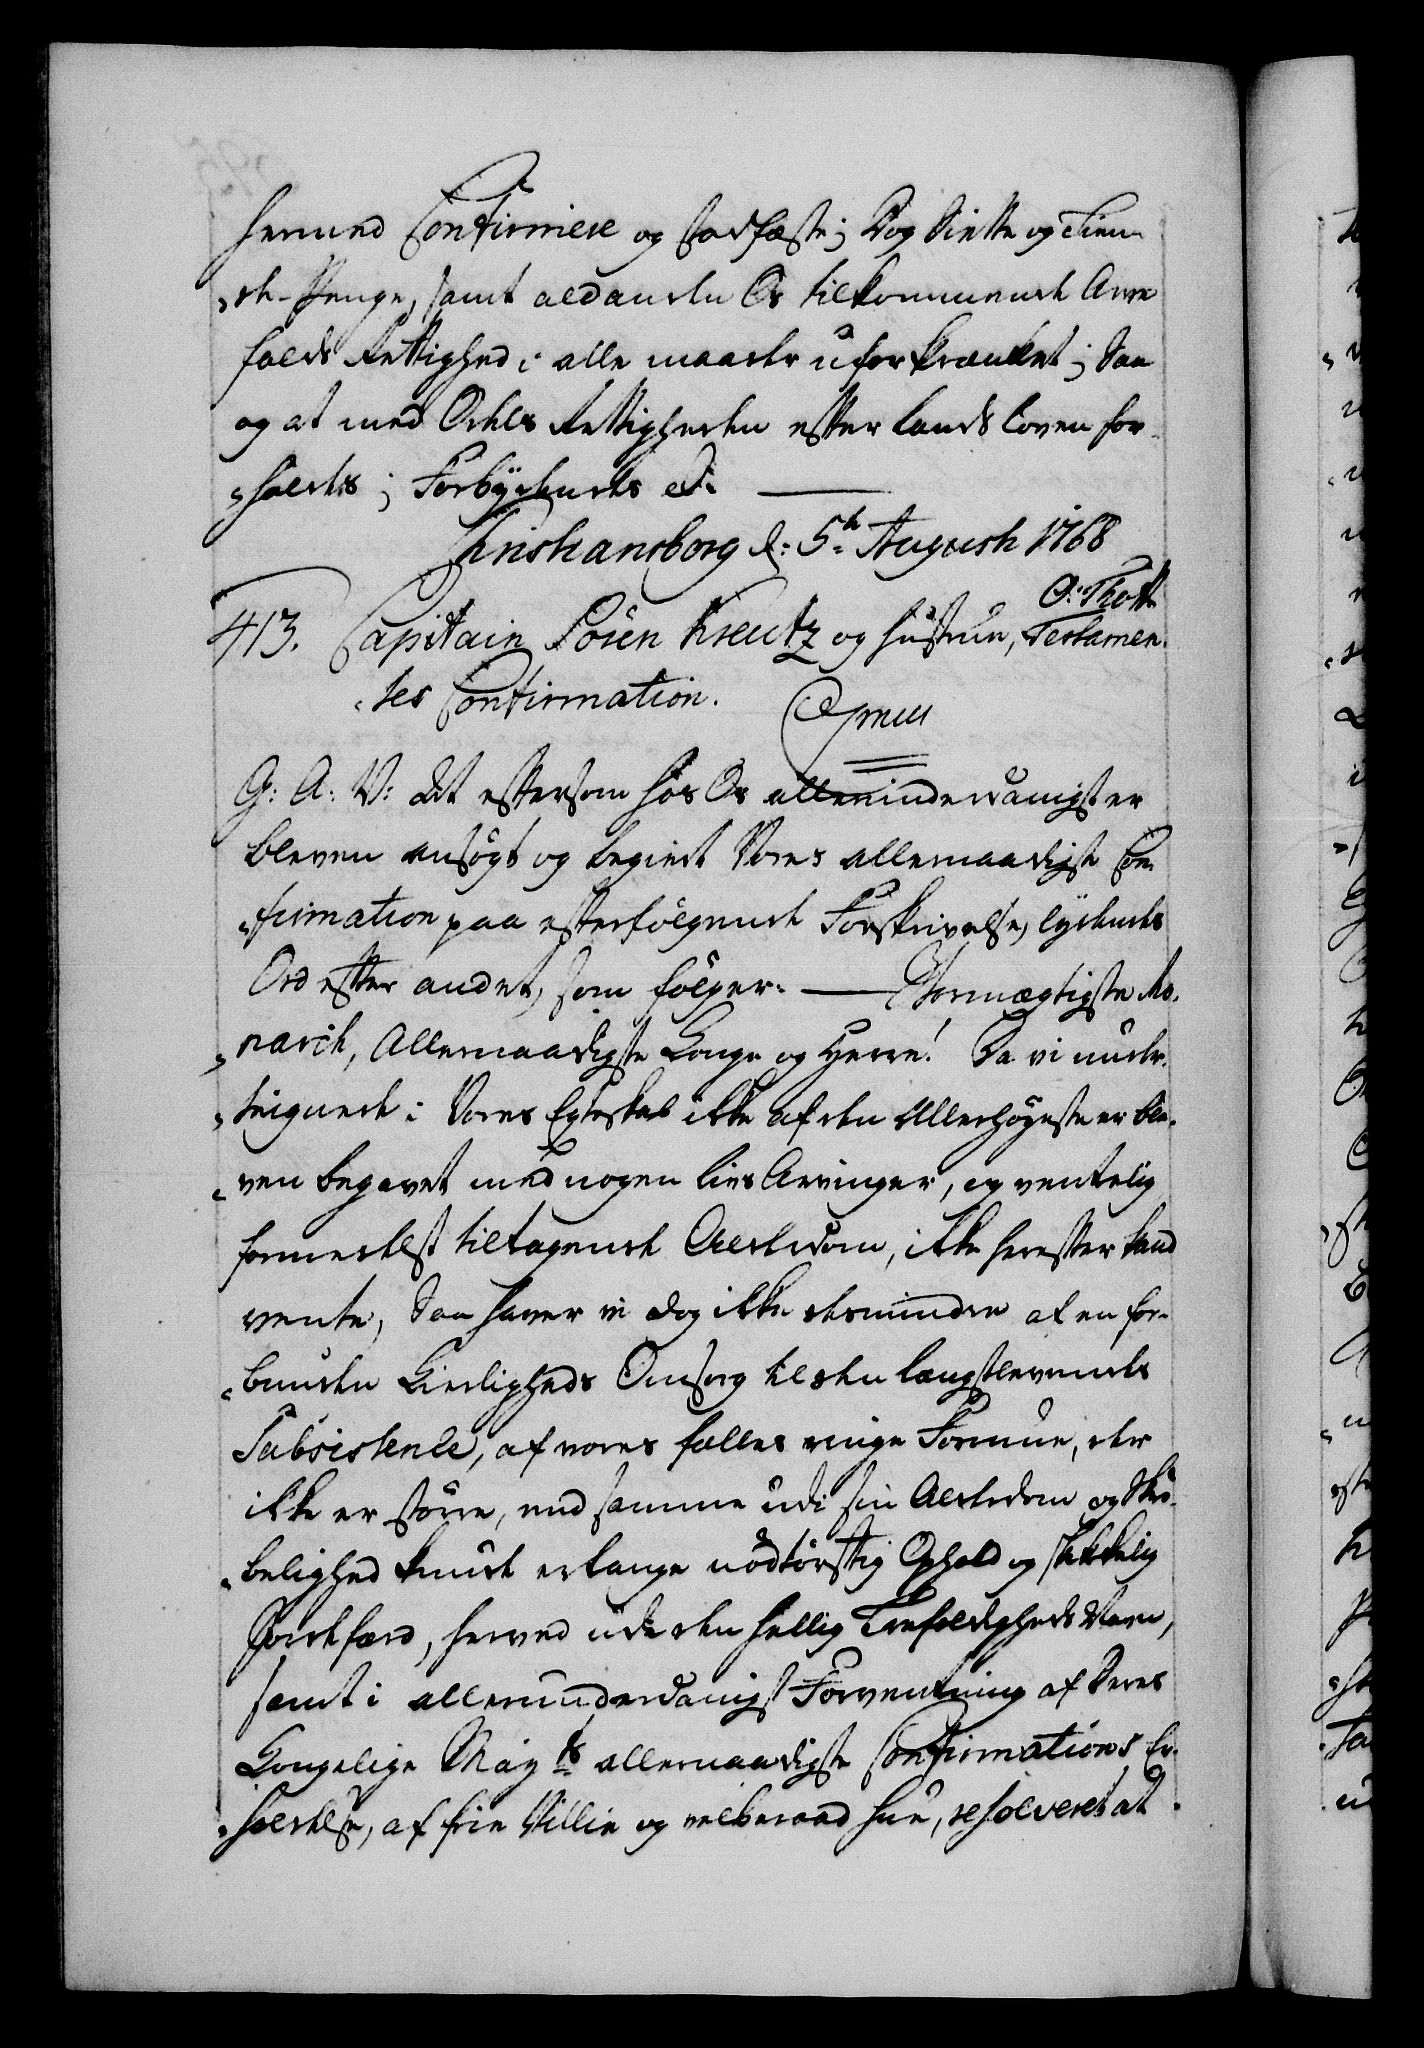 hermed Confirmere og stadfæste; Dog Siette og Tien-
de-Penge, samt ald anden Os tilkommende Arve
falds Rettighed i alle maader uforkrænket; Saa
og at med Odels Rettigheden efter Lands Loven for-
holdes; Forbydendes etc.
Christiansborg d: 5te Augusti 1768
O: Thott
413. Capitain Sören Kreutz og Hustrue, Testamen-
tes Confirmation.
Gratis
G: A: V: At eftersom hos Os allerunderdanigst er
bleven ansögt og begiert Vores allernaadigste Con-
firmation paa efterfölgende Forskrivelse, lydendes
Ord efter andet, som fölger. Stormægtigste Mo-
narch, Allernaadigste Konge og Herre! Da vi under-
teignede i Vores Egteskab ikke af den Allerhöyeste er ble-
ven begavet med nogen Livs Arvinger, og ventelig
formedelst tiltagende Alderdom, ikke herefter kand
vente, Saa haver vi dog ikke desmindre af en for-
bunden Kierligheds Omsorg til den længstlevendes
Subsistence, af vores fælles ringe Formue, der
ikke er större, end samme udi sin Alderdom og Skrö-
belighed kunde erlange nödtörftig Ophold og skikkelig
Jordefærd, herved udi den hellig Trefoldigheds Navn,
samt i allerunderdanigst Forventning af Deres
Kongelige Mayts allernaadigste Confirmations Er-
holdelse, af frie Villie og velberaad Hue, resolveret at